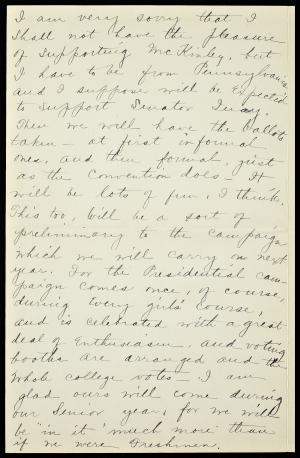 I am very sorry that I
shall not have the pleasure
of supporting McKinley, but
I have to be from Pennsylvania
and I suppose will be Expected
to support Senator Quay.
Then we will have the ballots
taken – at first informal
ones, and then formal, just
as the Convention does – It
will be lots of fun, I think.
This too, will be a sort of
preliminary to the campaign
which we will carry on next
year. For the Presidential cam-
paign comes once, of course,
during Every girl's course,
and is celebrated with a great
deal of Enthusiasm, and voting
booths are arranged and the
whole college votes – I am
glad ours will come during
our Senior year, for we will
be "in it" much more than
if we were Freshmen.